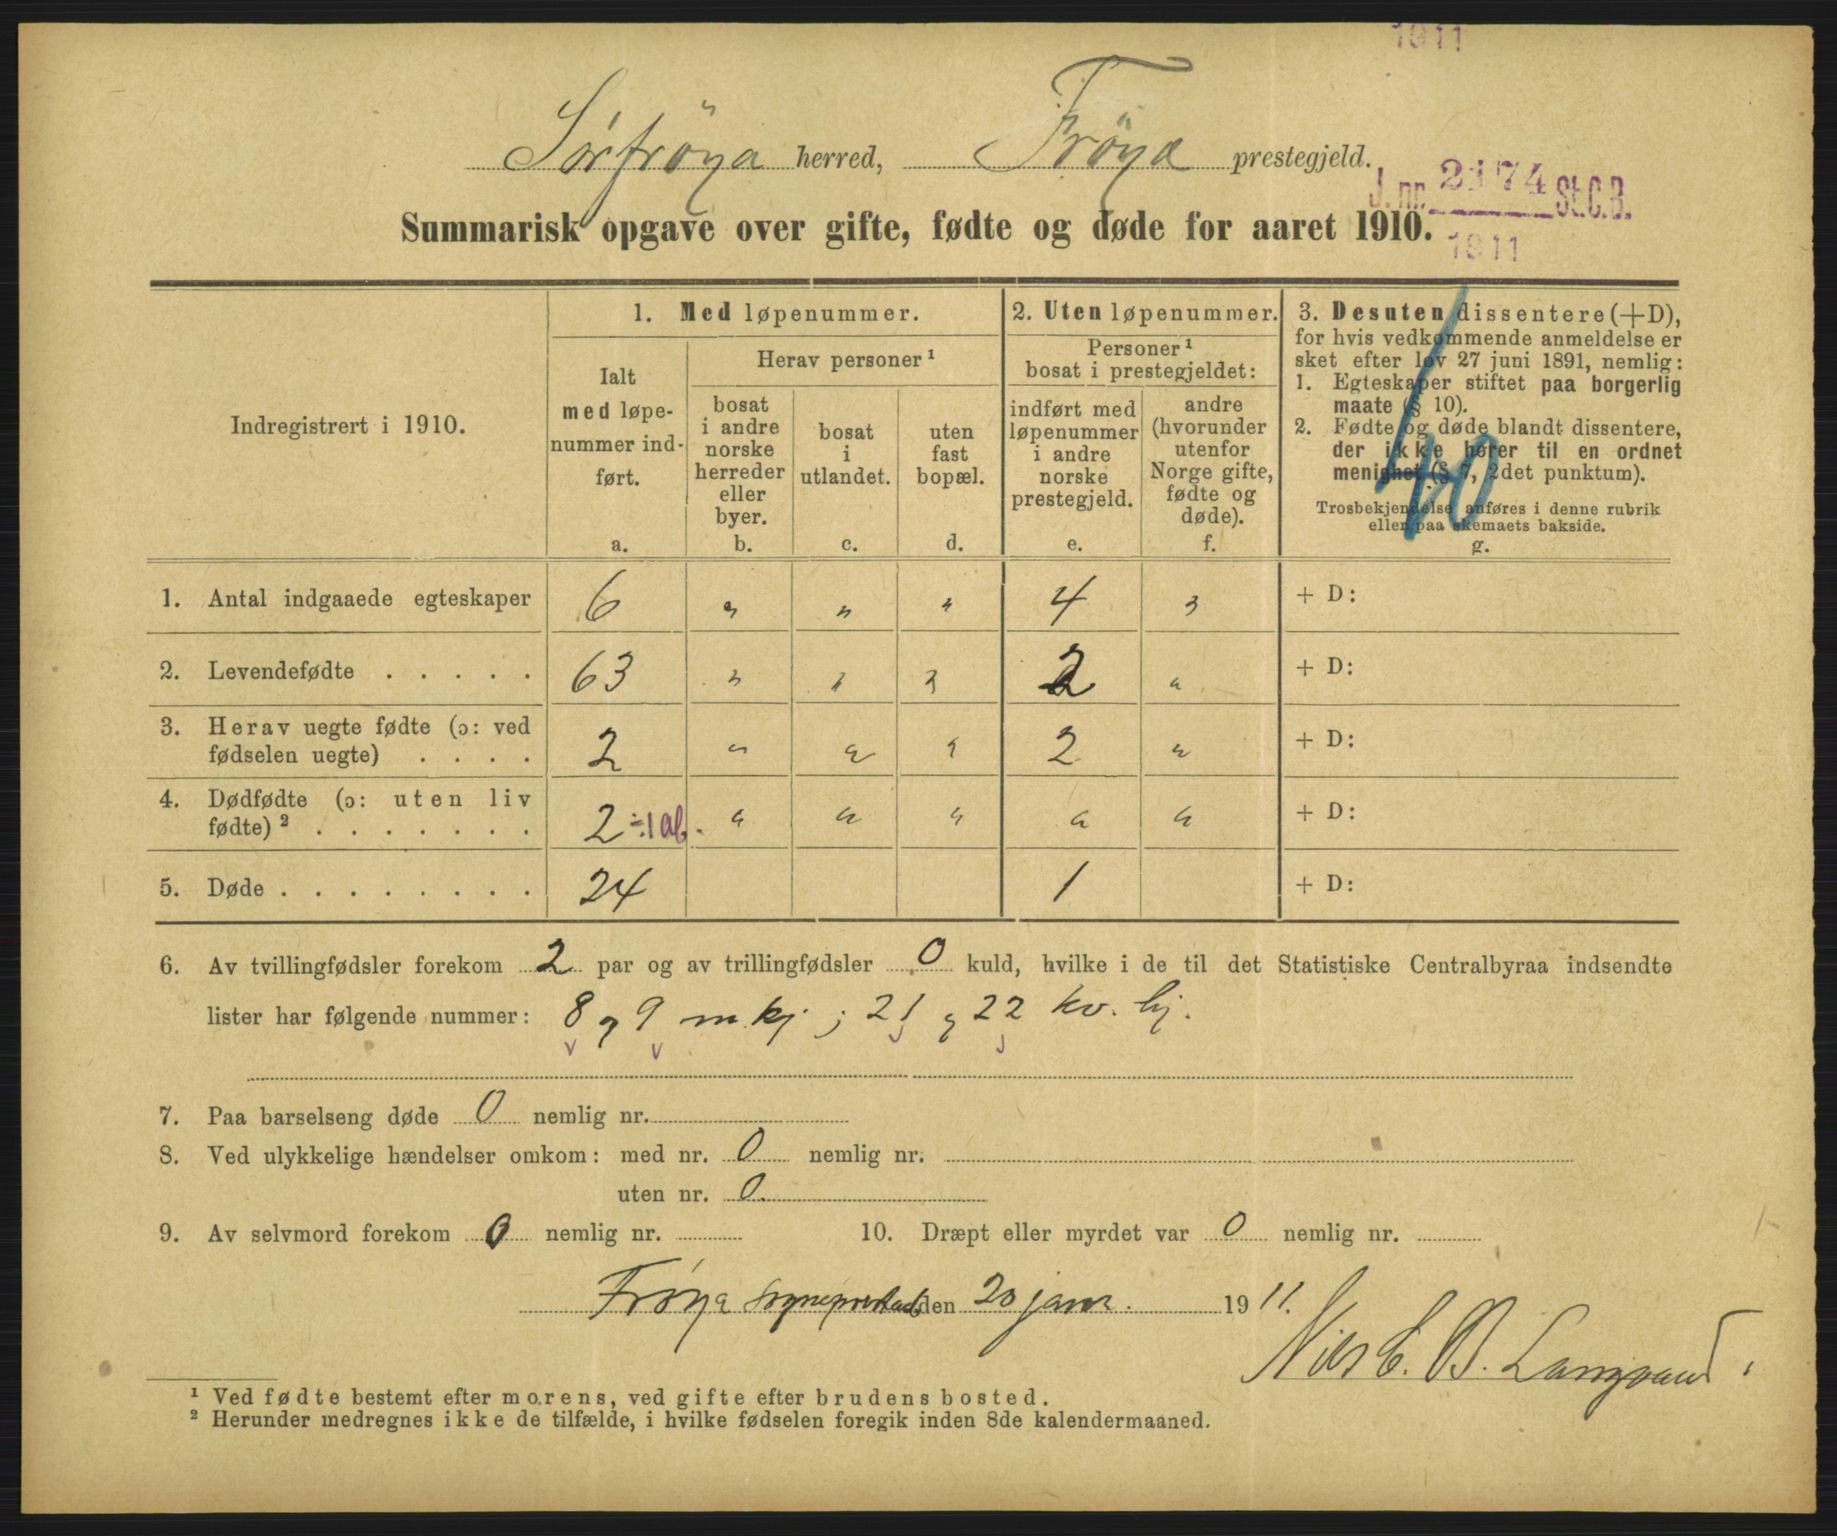 1911
Sörfröya herred, Fröya prestegjeld.
J. nr. 2174 St.C.B.
1911
Summarisk opgave over gifte, fødte og døde for aaret 1910.
Indregistrert i 1910.
1. Med løpenummer.
Ialt
med løpe-
nummer ind-
ført.
a.
Herav personer ¹
bosat
i andre
norske
herreder
eller
byer.
b.
bosat
i
utlandet.
c.
uten
fast
bopæl.
d.
2. Uten løpenummer.
Personer ¹
bosat i prestegjeldet:
indført med
løpenummer
i andre
norske
prestegjeld.
e.
andre
(hvorunder
utenfor
Norge gifte,
fødte og
døde).
f.
3. Desuten dissentere (+D),
for hvis vedkommende anmeldelse er
sket efter lov 27 juni 1891, nemlig:
1. Egteskaper stiftet paa borgerlig
maate (§ 10).
2. Fødte og døde blandt dissentere,
der ikke hører til en ordnet
menighet (§ 7, 2det punktum).
Trosbekjendelse anføres i denne rubrik
eller paa skemaets bakside.
g.
1. Antal indgaaede egteskaper 6 " " " 4 " + D:
2. Levendefødte . . . . . 63 " " " 2 " + D:
3. Herav uegte fødte (ɔ: ved
fødselen uegte) . . . . 2 " " " 2 " + D:
4. Dødfødte (ɔ: uten liv
fødte) ² . . . . . . . 2 ÷1 ab. " " " " " + D:
5. Døde . . . . . . . . 24 1 + D:
6. Av tvillingfødsler forekom 2 par og av trillingfødsler 0 kuld, hvilke i de til det Statistiske Centralbyraa indsendte
lister har følgende nummer: 8 og 9 m.kj ; 21 og 22 kv. kj.
7. Paa barselseng døde 0 nemlig nr.
8. Ved ulykkelige hændelser omkom: med nr. 0 nemlig nr.
uten nr. 0.
9. Av selvmord forekom 0 nemlig nr. 10. Dræpt eller myrdet var 0 nemlig nr.
Frøya sogneprestad den 20 janr. 1911.
Niels C. B. Langsund.
¹ Ved fødte bestemt efter morens, ved gifte efter brudens bosted.
² Herunder medregnes ikke de tilfælde, i hvilke fødselen foregik inden 8de kalendermaaned.